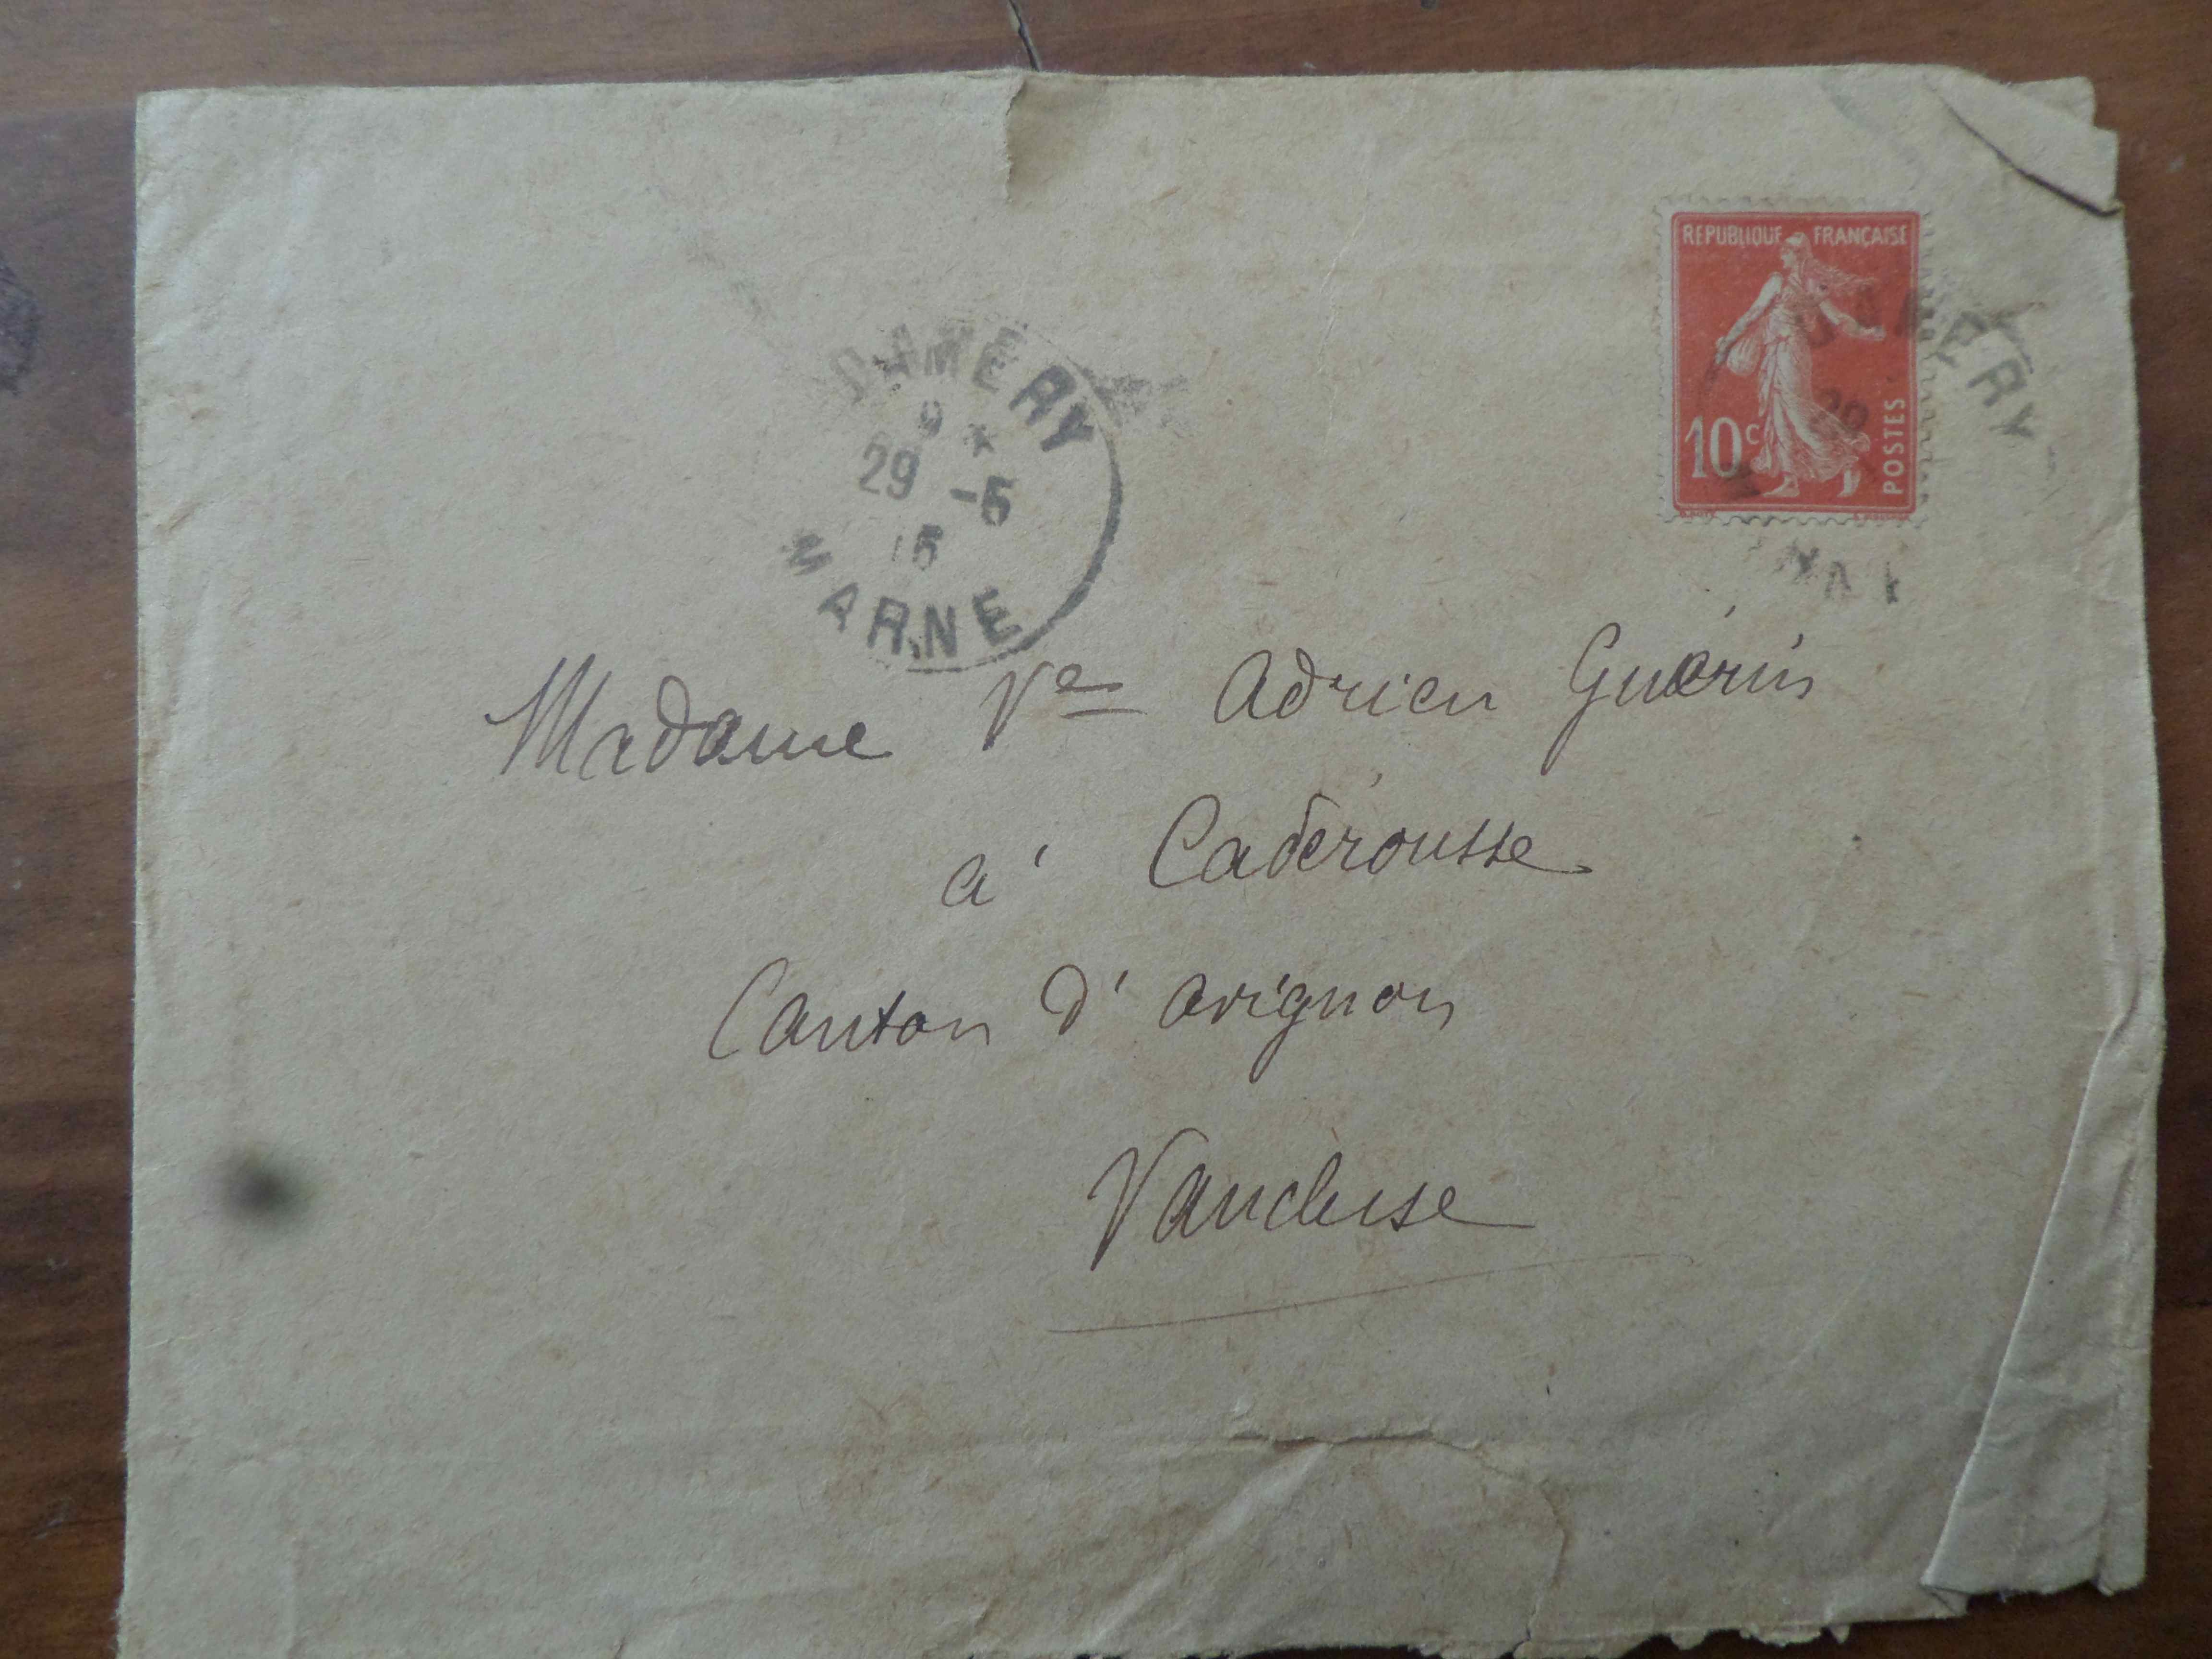 REPUBLIQUE FRANÇAISE
10c
POSTES
DAMERY
9 *
29 -5
15
MARNE
DAMERY
29
Madame Ve Adrien Guérin
à Caderousse
Canton d'avignon
Vaucluse